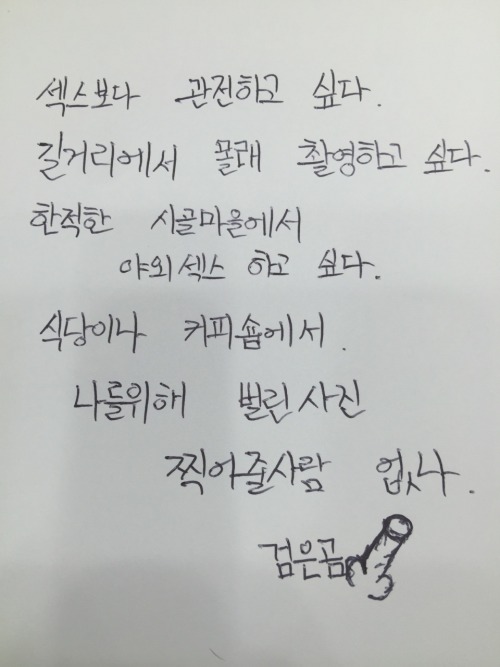 섹스보다 관전하고 싶다.
길거리에서 몰래 촬영하고 싶다.
한적한 시골마을에서
야외섹스 하고 싶다.
식당이나 커피숍에서.
나를위해 벌린 사진
찍어줄사람 없나.
검은곰